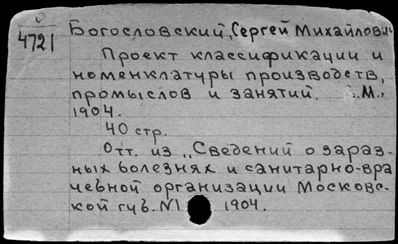 О
4721
Богословский, Сергей Михайлович
Проект классификации и
номенклатуры производств,
промыслов и занятий. М.,
1904.
40 стр.
Отт. из „Сведений о зараз-
ных болезнях и санитарно-вра
чебной организации Московс-
кой губ. №1 1904.